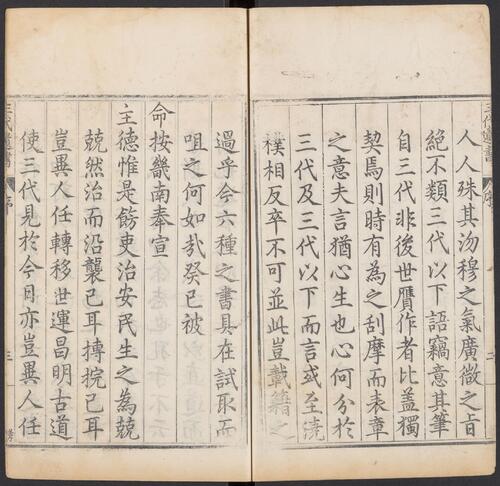 人人殊其沕穆之氣廣微之旨
絕不類三代以下語竊意其筆
自三代非後世贗作者比蓋獨
契焉則時有為之刮摩而表章
之意夫言猶心生也心何分於
三代及三代以下而言或至澆
樸相反卒不可並此豈載籍之
過乎今六種之書具在試取而
咀之何如哉癸已被
命按畿南奉宣
主德惟是飭吏治安民生之為兢
兢然治而沿襲已耳摶捖已耳
豈異人任轉移世運昌明古道
使三代見於今日亦豈異人任
三代遺書
序
三